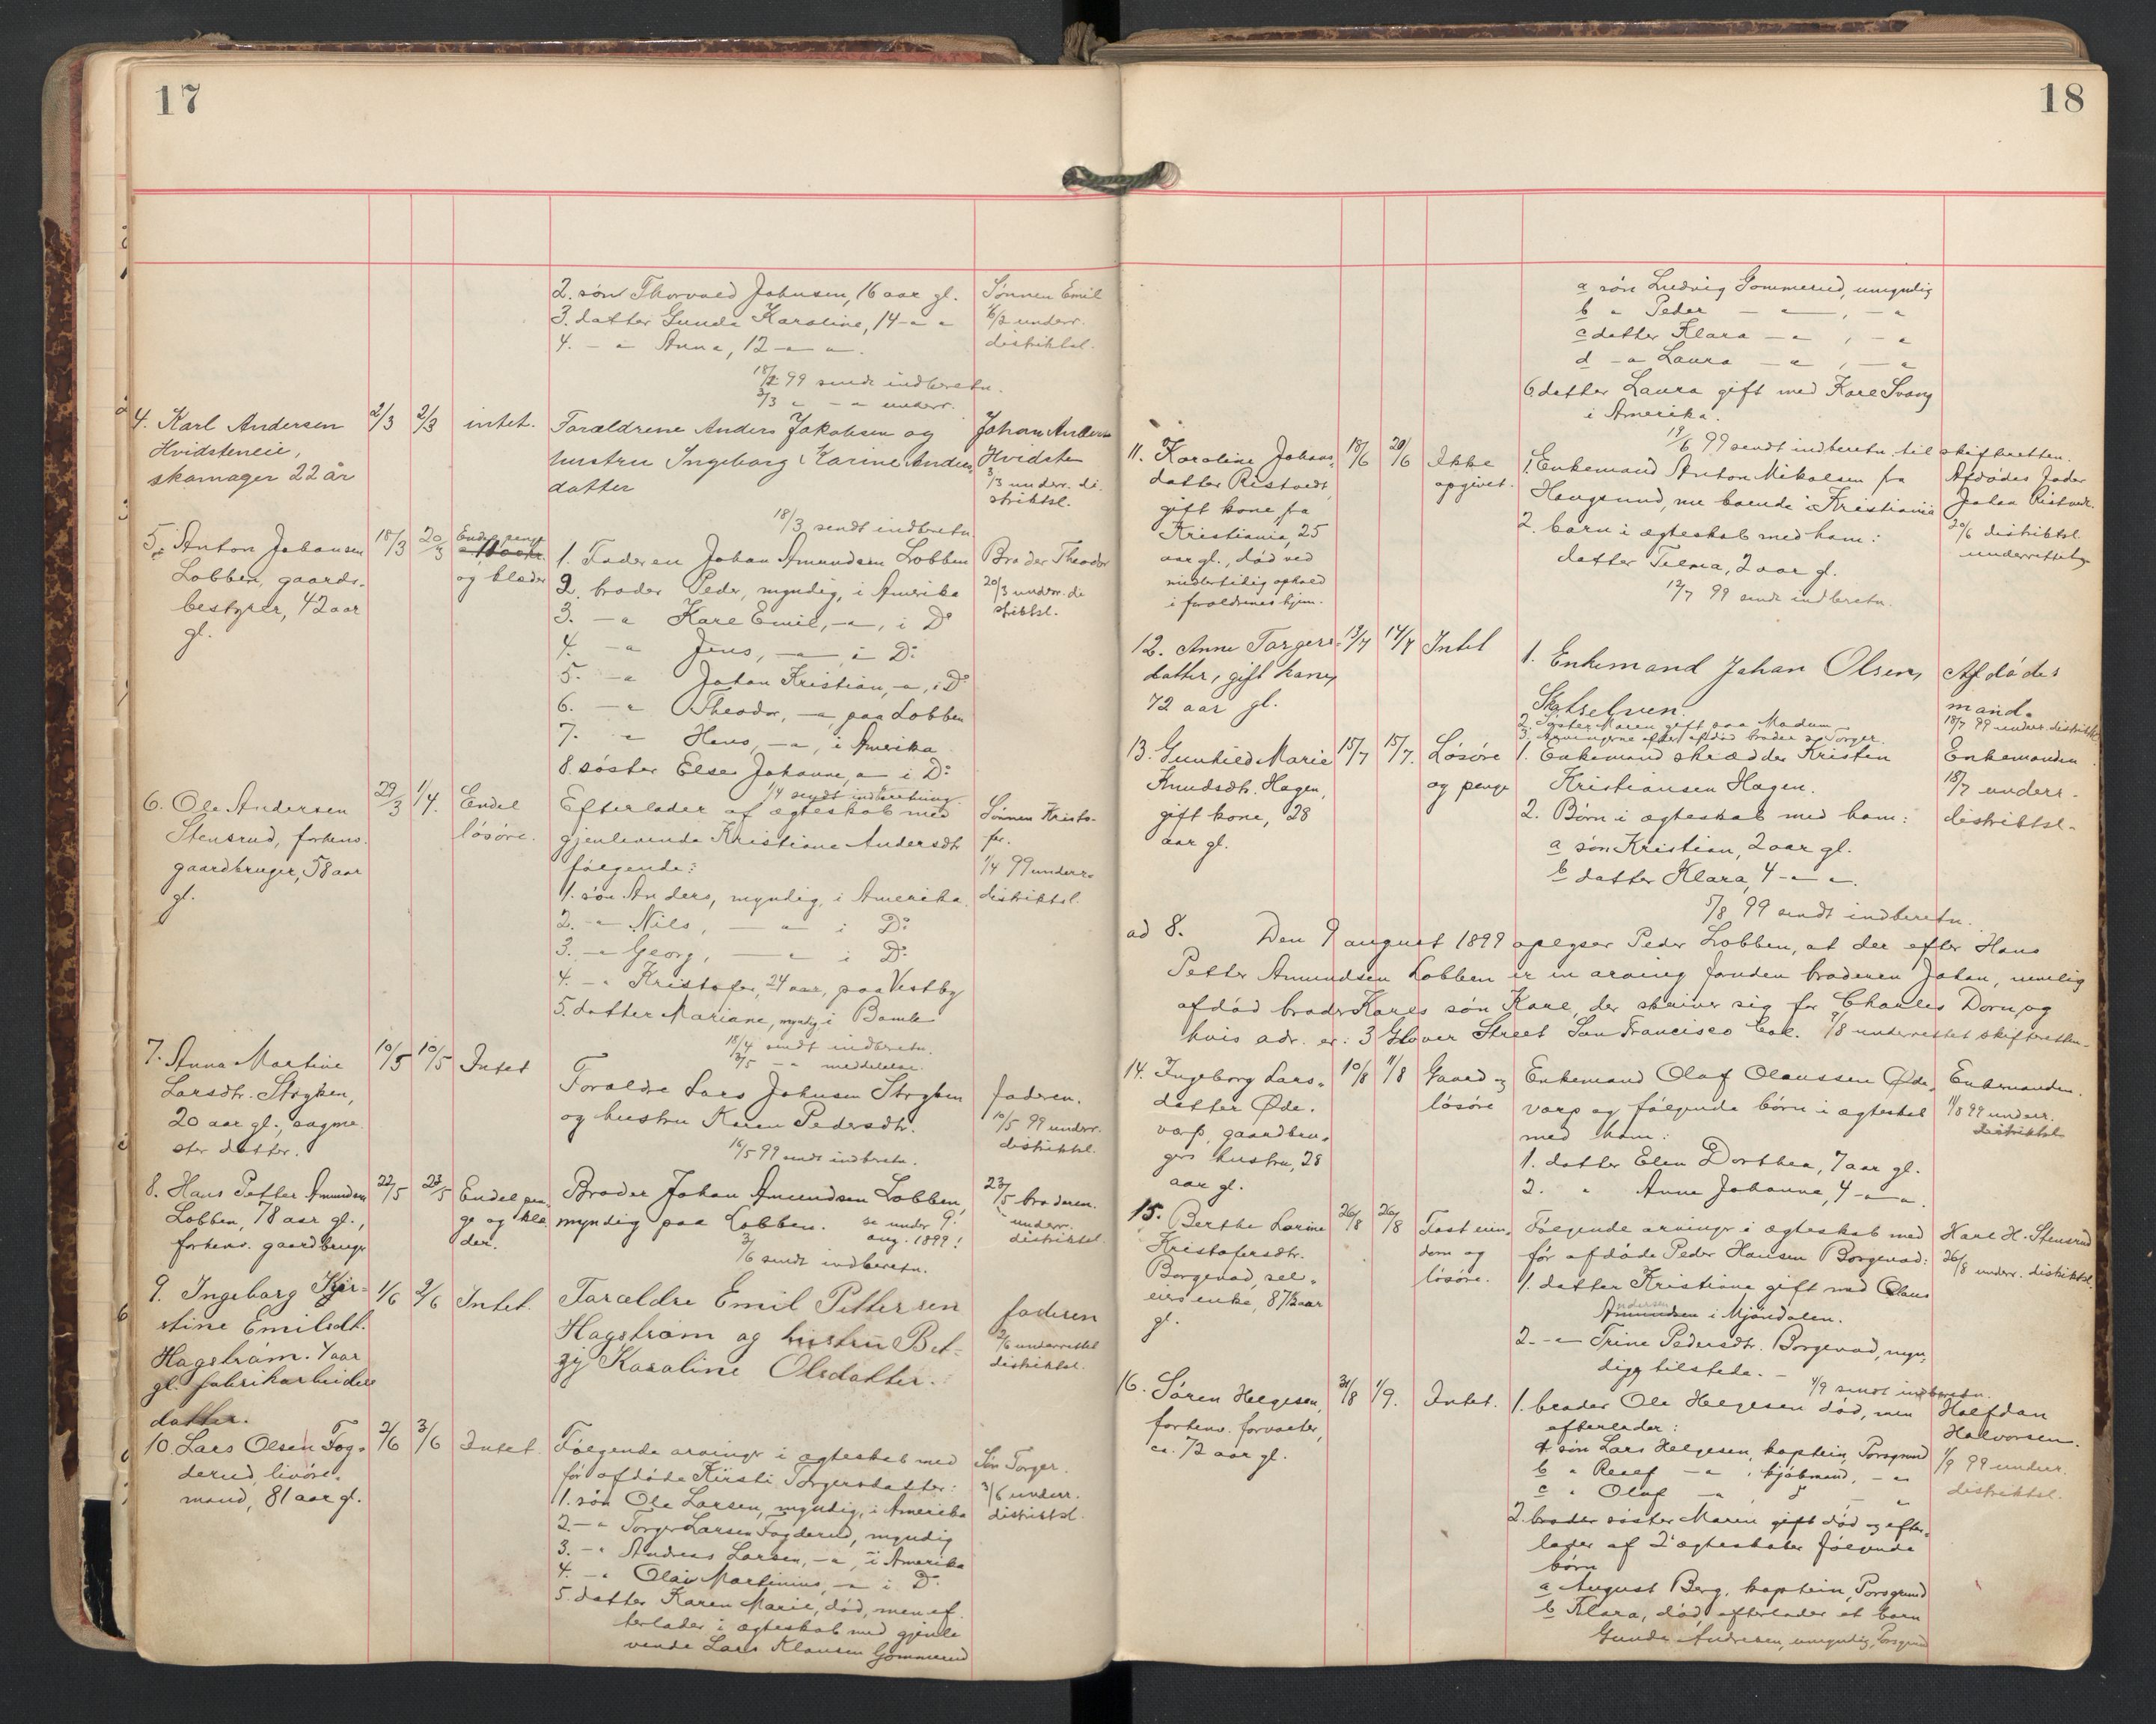 17
2. søn Thorvald Johnsen, 16 aar gl.
3. datter Gunda Karoline, 14 - " "
4. - " Anna, 12 - " "
18/2 99 sendt indberetn.
3/3 " - " underr.
Sønnen Emil
6/2 underr.
distriktsl.
4. Karl Andersen
Hvidsteneie,
skomager 22 år
2/3
2/3
intet.
Forældrene Anders Jakobsen og
hustru Ingeborg Karine Anders-
datter
18/3 sendt indberetn.
Johan Anders
Hvidste
3/3 underr. di-
striktsl.
5. Anton Johansen
Lobben, gaards-
bestyrer, 42 aar
gl.
18/3
20/3
Endel penge
og klæder
1. Faderen Johan Amundsen Lobben
2. broder Peder, myndig, i Amerika
3. - " Karl Emil, - " , i Do
4. - " Jens, - " i Do
5. - " Johan Kristian, - " , i Do
6. - " Theodor, - " paa Lobben
7. " Hans, - " , i Amerika
8. søster Else Johanne, " i Do
1/4 sendt indberetning.
Broder Theodor
20/3 underr. di
striktsl.
6. Ole Andersen
Stensrud, forhenv.
gaardbruger, 58 aar
gl.
29/3
1/4.
Endel
løsøre.
Efterlader af ægteskab med
gjenlevende Kristiane Andersdtr.
følgende:
1. søn Anders, myndig, i Amerika.
2. - " Nils, - " i Do
3. - " Georg, - " i Do
4. - " Kristofer, 24 aar, paa Vestby
5. datter Mariane, myndig i Bamle
18/4 sendt indberetn.
3/5 - " meddelelse.
Sønnen Kristo-
fer.
1/4 99 underr.
distriktsl.
7. Anna Martine
Larsdtr. Stryken,
20 aar gl., sagme-
ster datter.
10/5
10/5
Intet
Foræld­re Lars Johnsen Stryken
og hustru Karen Pedersdtr.
16/5 99 sendt indberetn.
faderen.
10/5 99 underr.
distriktsl.
8. Hans Petter Amundsen
Lobben, 78 aar gl.,
forhenv. gaardbruger
22/5
23/5
Endel pen-
ge og klæ-
der.
Broder Johan Amundsen Lobben,
myndig paa Lobben. se under 9.
aug. 1899!
3/6 sendt indberetn.
23/5 broderen.
underr.
distriktsl.
9. Ingeborg Kjer-
stine Emilsdt.
Hagstrøm. 7 aar
gl. fabrikarbeider
datter.
1/6
2/6
Intet.
Forældre Emil Pettersen
Hagstrøm og hustru Bet-
zy Karoline Olsdatter.
faderen
2/6 underrettet
distriktsl.
10. Lars Olsen Fog-
derud, livøre-
mand, 81 aar gl.
2/6
3/6
Intet.
Følgende arvinger i ægteskab med
før afdøde Kirsti Torgersdatter:
1. søn Ole Larsen, myndig, i Amerika
2. - " Torger Larsen Fogderud, myndig
3. - " Andreas Larsen, - " , i Amerika
4. - " Olai Martinius, - " i Do
5. datter Karen Marie, død, men ef-
terlader i ægteskab med gjenle-
vende Lars Klausen Gommerud
Søn Torger.
3/6 underr.
distriktsl.
18
a søn Ludvig Gommerud, umyndig
b " Peder - " , - "
c datter Klara - " , - "
d - " Laura - " , - "
6. datter Laura gift med Karl Svang
i Amerika.
19/6 99 sendt indberetn. til skifteretten.
11. Karoline Johans-
datter Ristvedt,
gift kone, fra
Kristiania, 25
aar gl., død ved
midlertidig ophold
i forældrenes hjem.
18/6
20/6
Ikke
opgivet.
1. Enkemand Anton Nikolsen fra
Hougsund, nu boende i Kristiania
2. barn i ægteskab med ham:
datter Telma, 2 aar gl.
12/7 99 sendt indberetn.
Afdødes fader
Johan Ristvedt.
20/6 distriktsl.
underrettet
12. Anne Torgers-
datter, gift kone,
72 aar gl.
13/7
14/7
Intet
1. Enkemand Johan Olsen,
Skotselven.
2. Søster Maren gift paa Modum
3. Arvingerne efter afdød broder Torger.
Afdødes
mand.
18/7 99 underr. distriktsl.
13. Gunhild Marie
Knudsdtr. Hagen,
gift kone, 28
aar gl.
15/7
15/7.
Løsøre
og penge
1. Enkemand skrædder Kristen
Kristiansen Hagen.
2. Børn i ægteskab med ham:
a søn Kristian, 2 aar gl.
b datter Klara, 4 - " "
5/8 99 sendt indberetn.
Enkemanden
18/7 underr.
distriktsl.
ad 8. Den 9 august 1899 oplyser Peder Lobben, at der efter Hans
Petter Amundsen Lobben er en arving foruden broderen Johan, nemlig
afdød broder Karls søn Karl, der skriver sig for Charles Dorn, og
hvis adr. er: 3 Glover Street San Francisco Cal. 9/8 underrettet skifteretten
14. Ingeborg Lars-
datter Øde-
varp, gaardbru-
gers hustru, 28
aar gl.
10/8
11/8
Gaard og
løsøre
Enkemand Olaf Olaussen Øde-
varp og følgende børn i ægteskab
med ham:
1. datter Elen Dorthea, 7 aar gl.
2. " Anne Johanne, 4 - " "
Enkemanden.
11/8 99 underr.
distriktsl.
15. Berthe Lorine
Kristofersdtr.
Borgevad, sel-
eiers enke, 87 1/2 aar
gl.
26/8
26/8
Fast eien-
dom og
løsøre.
Følgende arvinger i ægteskab med
før afdøde Peder Hansen Borgevad:
1. datter Kristiane gift med Olaus
Andersen i Mjøndalen.
2. - " Trine Pedersdtr. Borgevad, myn-
dig, tilstede. -
4/9 sendt indberetn.
Karl H. Stensrud
26/8 underr. distriktsl.
16. Søren Helgesen,
forhenv. forvalter,
ca. 72 aar gl.
31/8
1/9.
Intet.
1. broder Ole Helgesen død, men
efterlader:
a søn Lars Helgesen, kaptein, Porsgrund
b " Realf - " , kjøbmand, - "
c " Olaf - "
2. søster Maren gift død og efter-
lader af 2 ægteskaber følgende
børn
a August Berg, kaptein, Porsgrund
b Klara, død, efterlader et barn
Gunda Andresen, umyndig, Porsgrund
Halfdan
Halvorsen.
1/9 99 underr.
distriktsl.